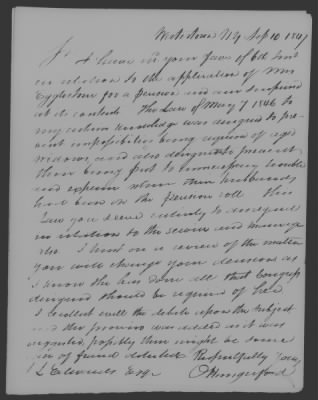 Watertown NY Sep 10 1847
Sir I have in your favor of 6th Inst
in relation to the application of Mrs
Eggleston for a pension and am surprised
at its contents The Law of May 7 1846 to
my certain knowledge was designed to pre
vent impossibilities being required of aged
widows and also designed to prevent
them being put to unnecessary trouble
and expense when their husbands
had been on the pension roll This
Law you seem entirely to disregard
in relation to the service and marriage
etc I trust on a review of the matter
you will change your decision as
I know she has done all that Congress
designed should be required of her
I recollect well the debate upon the subject
and the proviso was added as it was
suggested possibly there might be some
case of fraud detected Respectfully yours
J L Edwards Esq O Hungerford